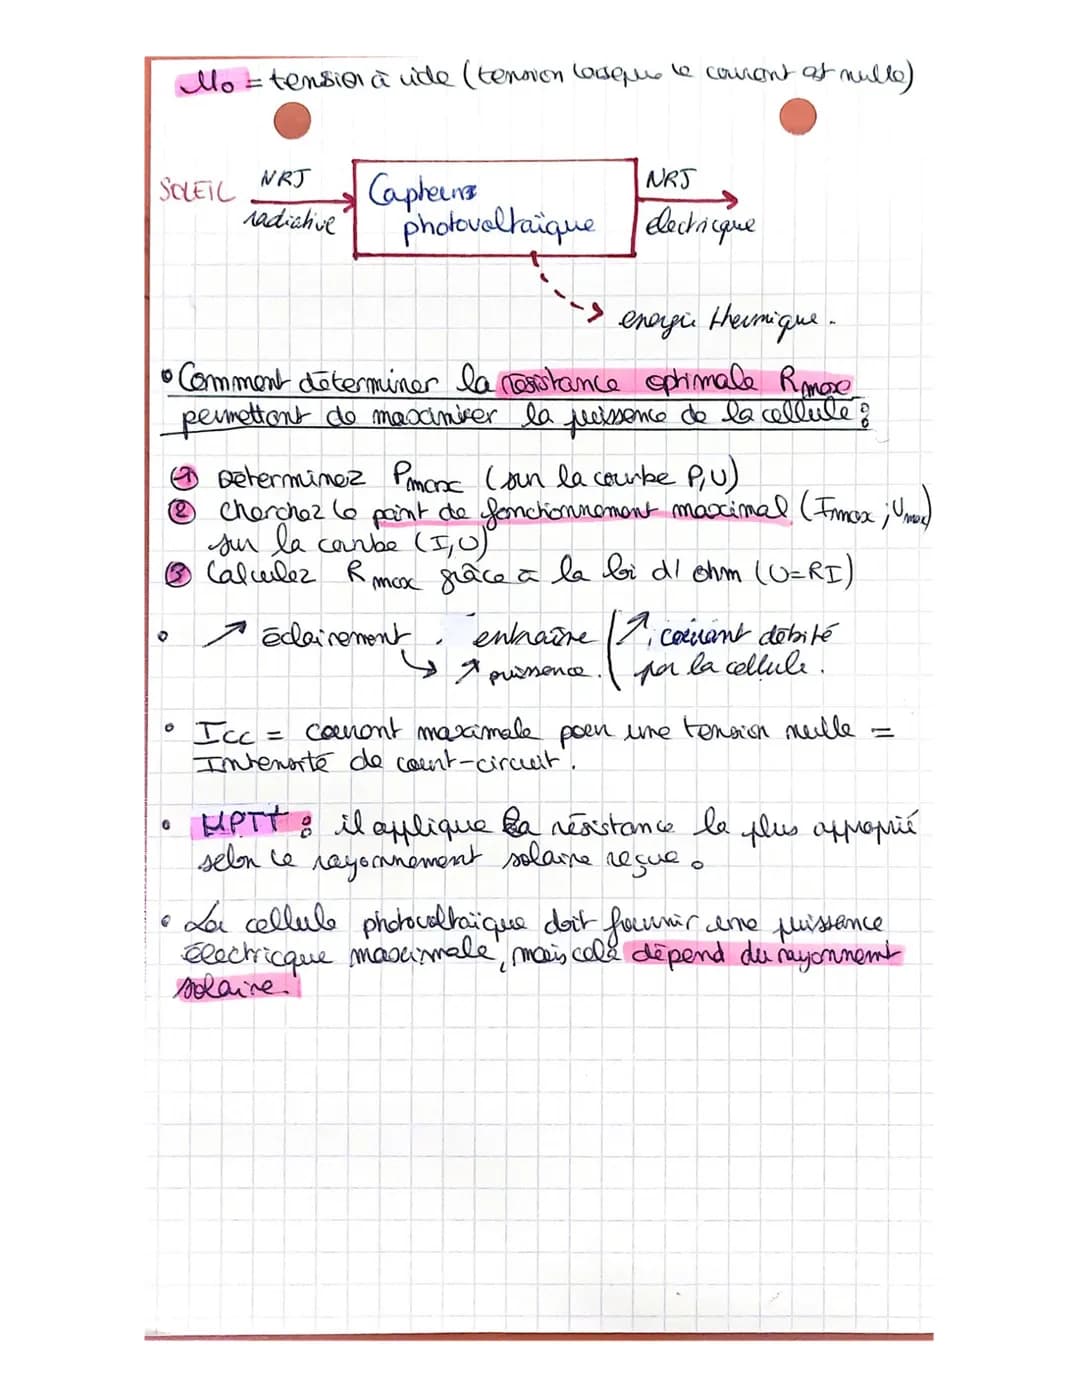 Uo = tension à vide (tension lorsque le courant est nulle)
SOLEIL NRJ radiative
Capteurs photovoltaïque
NRJ électricque
energie thermique.
• Comment déterminer la résistance optimale Rmax
permettant de maximiser la puissence de la cellule ?
① Déterminez Pmax (sur la courbe P,U)
② Cherchez le point de fonctionnement maximal (Imax ; Umax)
sur la courbe (I,U)
③ Calculez Rmax grâce à la loi d'ohm (U=RI)
• ↗ éclairement, entraîne ( ↗ courant débité
↳ ↗ puissence. ( par la cellule.
• Icc = courant maximale pour une tension nulle =
Intensité de court-circuit.
• MPTT : il applique la résistance la plus approprié
selon le rayonnement solaire reçue.
• La cellule photovoltaïque doit fournir une puissance
électricque maximale, mais cela dépend du rayonnemt
solaire.